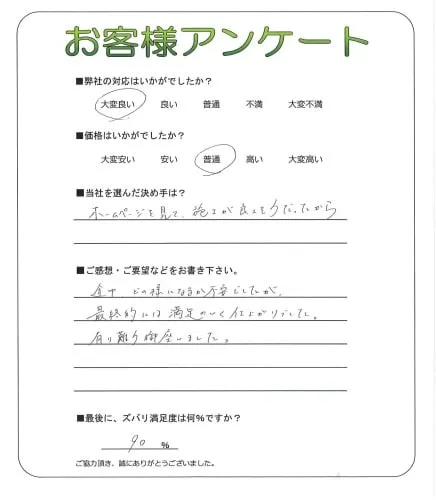 お客様アンケート
■弊社の対応はいかがでしたか?
大変良い 良い 普通 不満 大変不満
■価格はいかがでしたか?
大変安い 安い 普通 高い 大変高い
■当社を選んだ決め手は?
ホームページを見て、施工が良さそうだったから
■ご感想・ご要望などをお書き下さい。
途中、どの様になるか不安でしたが、
最終的には満足のいく仕上がりでした。
有り難う御座いました。
■最後に、ズバリ満足度は何%ですか?
90 %
ご協力頂き、誠にありがとうございました。